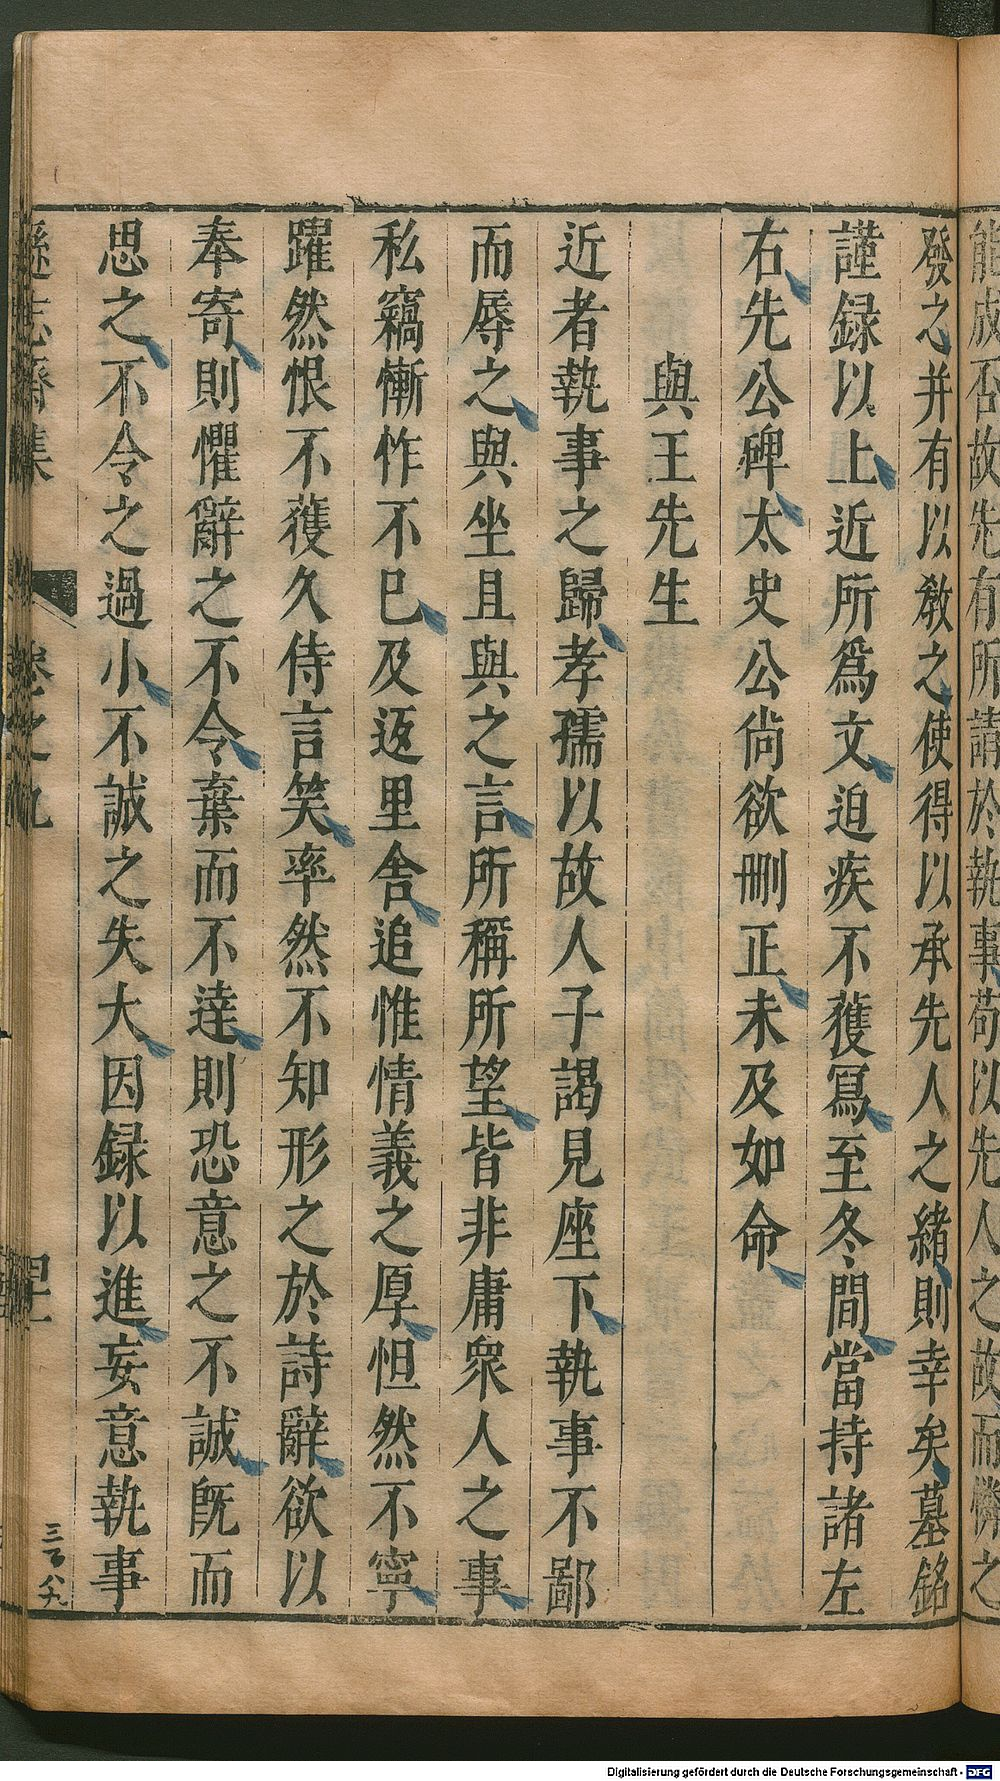 能成否故先有所請於執事苟以先人之故而憐之
發之并有以敎之使得以承先人之緒則幸矣墓銘
謹録以上近所爲文迫疾不獲寫至冬間當持諸左
右先公碑太史公尙欲刪正未及如命
與王先生
近者執事之歸孝孺以故人子謁見座下執事不鄙
而辱之與坐且與之言所稱所望皆非庸衆人之事
私竊慚怍不已及返里舍追惟情義之厚怛然不寧
躍然恨不獲久侍言笑率然不知形之於詩辭欲以
奉寄則懼辭之不令棄而不達則恐意之不誠旣而
思之不令之過小不誠之失大因録以進妄意執事
遜志齋集
卷之九
三百八九
Digitalisierung gefördert durch die Deutsche Forschungsgemeinschaft - DFG